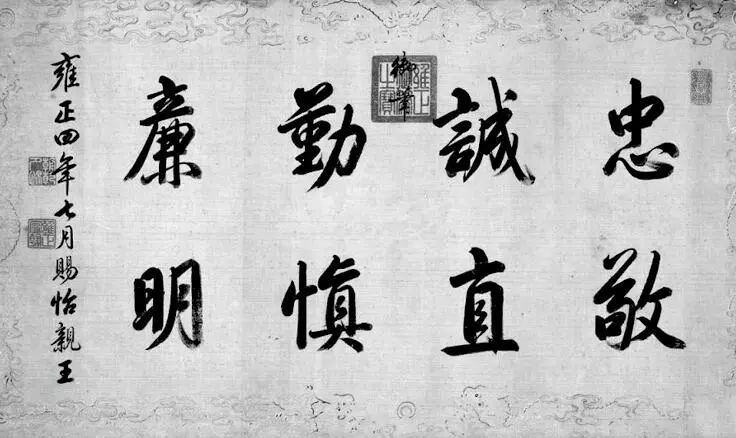 忠敬
誠直
御筆
雍正之寶
勤慎
廉明
雍正四年七月賜怡親王